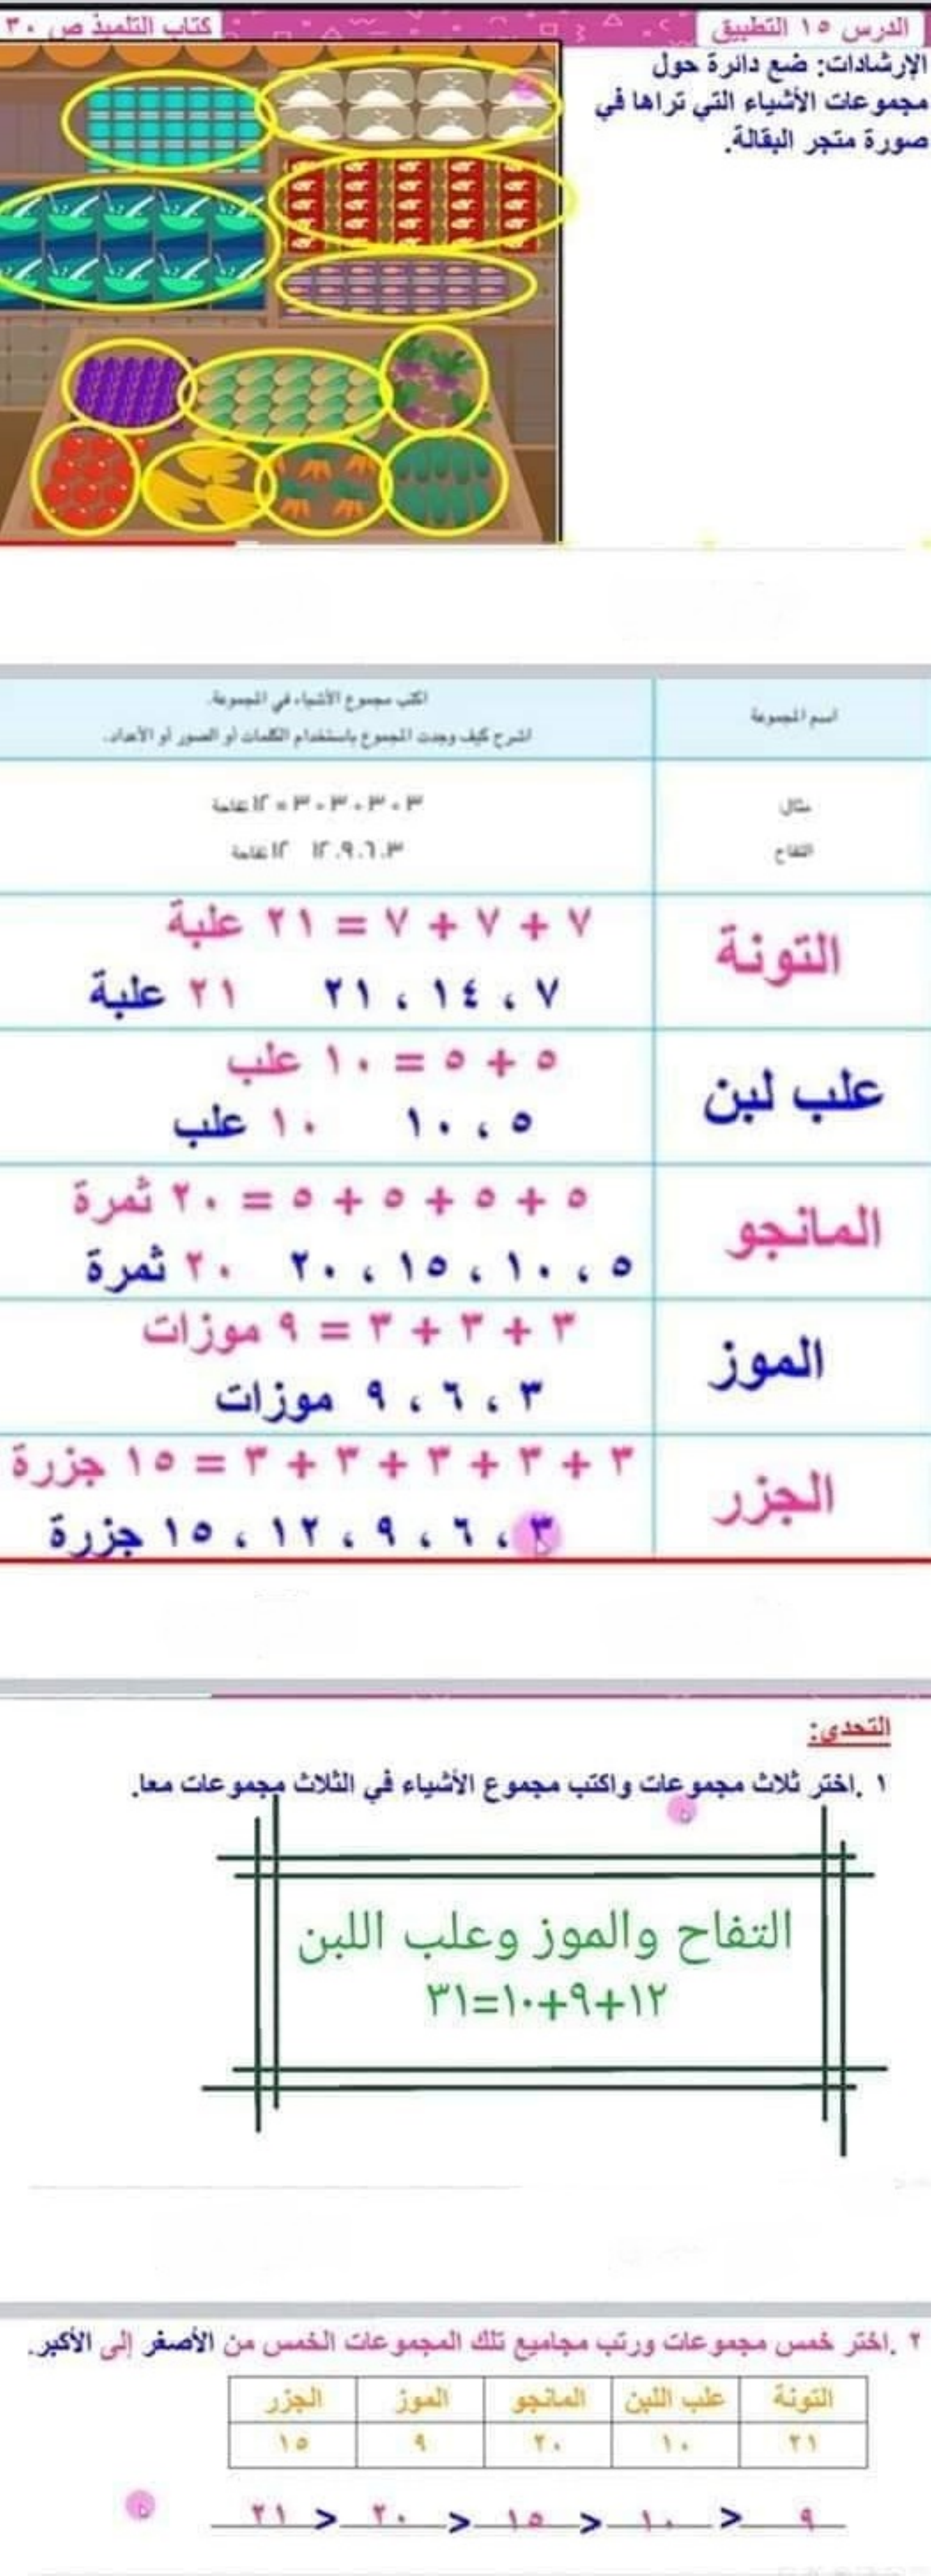 الدرس ١٥ التطبيق
كتاب التلميذ ص ٣٠
الإرشادات: ضع دائرة حول
مجموعات الأشياء التي تراها في
صورة متجر البقالة.
اسم المجموعة
اكتب مجموع الأشياء في المجموعة.
اشرح كيف وجدت المجموع باستخدام الكلمات أو الصور أو الأعداد.
مثال
٣ + ٣ + ٣ + ٣ = ١٢ تفاحة
التفاح
٣، ٦، ٩، ١٢ ١٢ تفاحة
التونة
٧ + ٧ + ٧ = ٢١ علبة
٧ ، ١٤ ، ٢١ ٢١ علبة
علب لبن
٥ + ٥ = ١٠ علب
٥ ، ١٠ ١٠ علب
المانجو
٥ + ٥ + ٥ + ٥ = ٢٠ ثمرة
٥ ، ١٠ ، ١٥ ، ٢٠ ٢٠ ثمرة
الموز
٣ + ٣ + ٣ = ٩ موزات
٣ ، ٦ ، ٩ موزات
الجزر
٣ + ٣ + ٣ + ٣ + ٣ = ١٥ جزرة
٣ ، ٦ ، ٩ ، ١٢ ، ١٥ جزرة
التحدي:
١ .اختر ثلاث مجموعات واكتب مجموع الأشياء في الثلاث مجموعات معا.
التفاح والموز وعلب اللبن
١٢+٩+١٠=٣١
٢ .اختر خمس مجموعات ورتب مجاميع تلك المجموعات الخمس من الأصغر إلى الأكبر.
التونة علب اللبن المانجو الموز الجزر
٢١ ١٠ ٢٠ ٩ ١٥
٩ < ١٠ < ١٥ < ٢٠ < ٢١